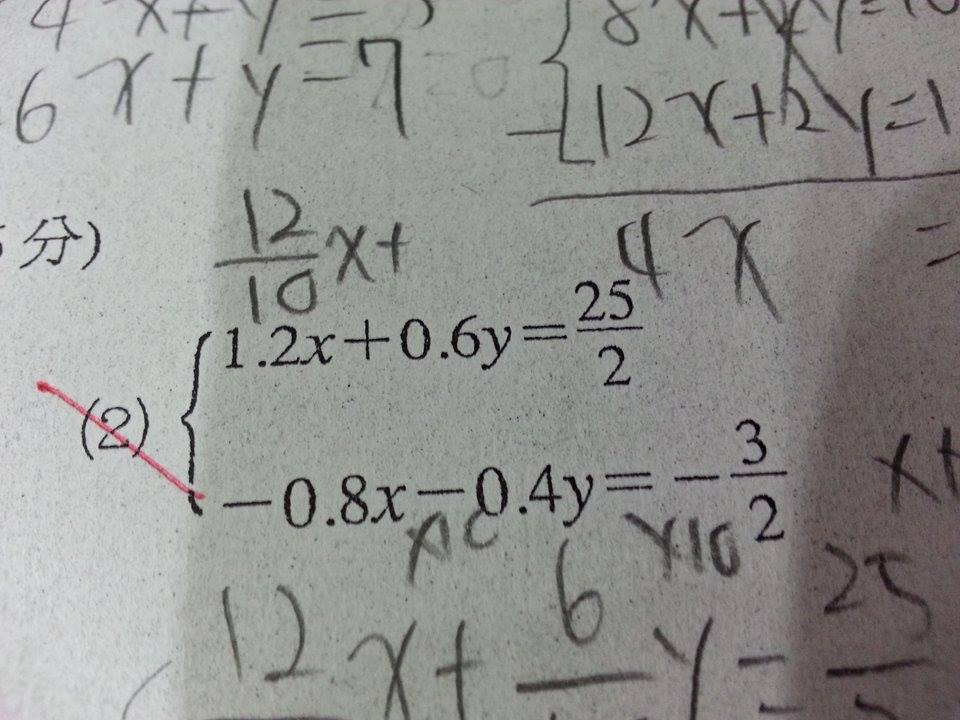 4x+y=5
6x+y=7
8x+2y=10
-12x+2y=1
4x =
分)
12/10 x+
(2) { 1.2x+0.6y=25/2
-0.8x-0.4y=-3/2
x+
×10 ×10
12 x+ 6 y= 25